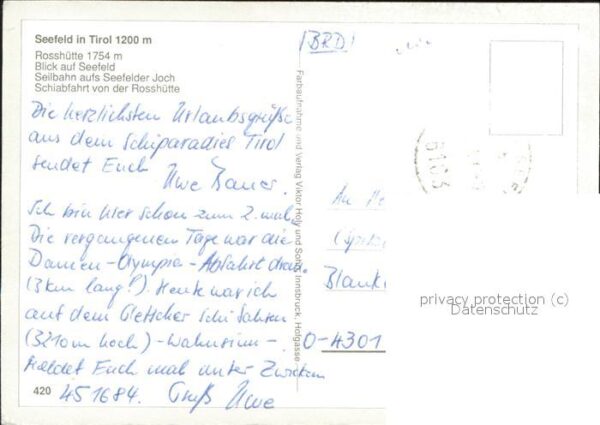 Seefeld in Tirol 1200 m
Rosshütte 1754 m
Blick auf Seefeld
Seilbahn aufs Seefelder Joch
Schiabfahrt von der Rosshütte
Die herzlichsten Urlaubsgrüße
aus dem Schiparadies Tirol
sendet Euch Uwe Bauer.
Ich bin hier schon zum 2. mal,
Die vergangenen Tage war die
Damen-Olympia-Abfahrt dran.
(3km lang!). Heute war ich
auf dem Gletscher Schi fahren
(3210m hoch) - Wahnsinn -
Meldet Euch mal unter Zwickau
451684. Gruß Uwe
420
Farbaufnahme und Verlag Viktor Holly und Sohn, Innsbruck, Hofgasse
(BRD)
6103
An
Blank
O-4301
privacy protection (c)
Datenschutz